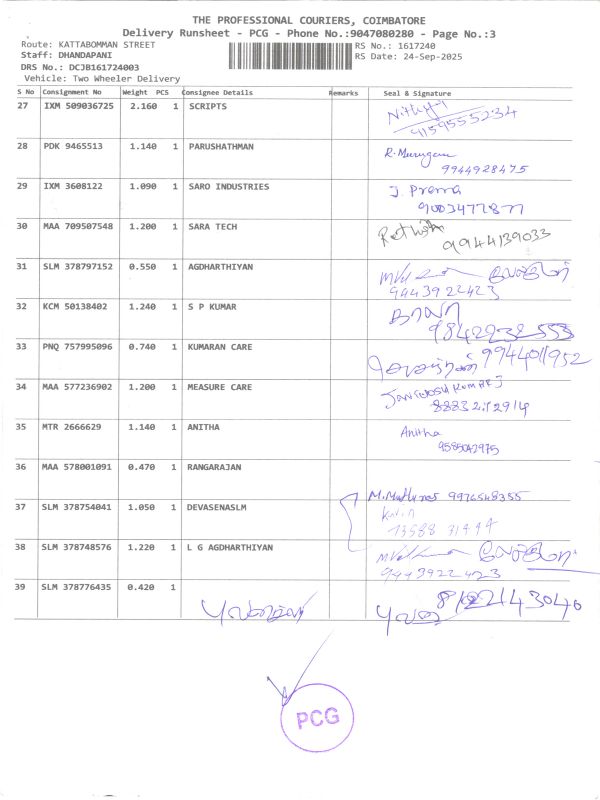 THE PROFESSIONAL COURIERS, COIMBATORE
Delivery Runsheet - PCG - Phone No.:9047080280 - Page No.:3
Route: KATTABOMMAN STREET
RS No.: 1617240
Staff: DHANDAPANI
RS Date: 24-Sep-2025
DRS No.: DCJB161724003
Vehicle: Two Wheeler Delivery
S No Consignment No Weight PCS Consignee Details Remarks Seal & Signature
27 IXM 509036725 2.160 1 SCRIPTS
9159555234
28 PDK 9465513 1.140 1 PARUSHATHMAN R. Murugan
9944928475
29 IXM 3608122 1.090 1 SARO INDUSTRIES J. Prema
30 MAA 709507548 1.200 1 SARA TECH
9944139033
31 SLM 378797152 0.550 1 AGDHARTHIYAN
9443922423
32 KCM 50138402 1.240 1 S P KUMAR பாலா
33 PNQ 757995096 0.740 1 KUMARAN CARE 9944011952
34 MAA 577236902 1.200 1 MEASURE CARE
35 MTR 2666629 1.140 1 ANITHA Anitha
9585042975
36 MAA 578001091 0.470 1 RANGARAJAN
9976548355
37 SLM 378754041 1.050 1 DEVASENASLM
38 SLM 378748576 1.220 1 L G AGDHARTHIYAN
9443922423
39 SLM 378776435 0.420 1
8122143040
PCG